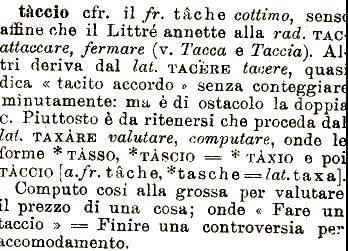 tàccio cfr. il fr. tâche cottimo, senso
affine che il Littré annette alla rad. TAC-
attaccare, fermare (v. Tacca e Taccia). Al-
tri deriva dal lat. TACÈRE tacere, quasi
dica « tacito accordo » senza conteggiare
minutamente: ma è di ostacolo la doppia
c. Piuttosto è da ritenersi che proceda dal
lat. TAXÀRE valutare, computare, onde le
forme *TÀSSO, *TÀSCIO = *TÀXIO e poi
TÀCCIO [a. fr. tâche, *tasche = lat. taxa].
Computo così alla grossa per valutare
il prezzo di una cosa; onde « Fare un
taccio » = Finire una controversia per
accomodamento.